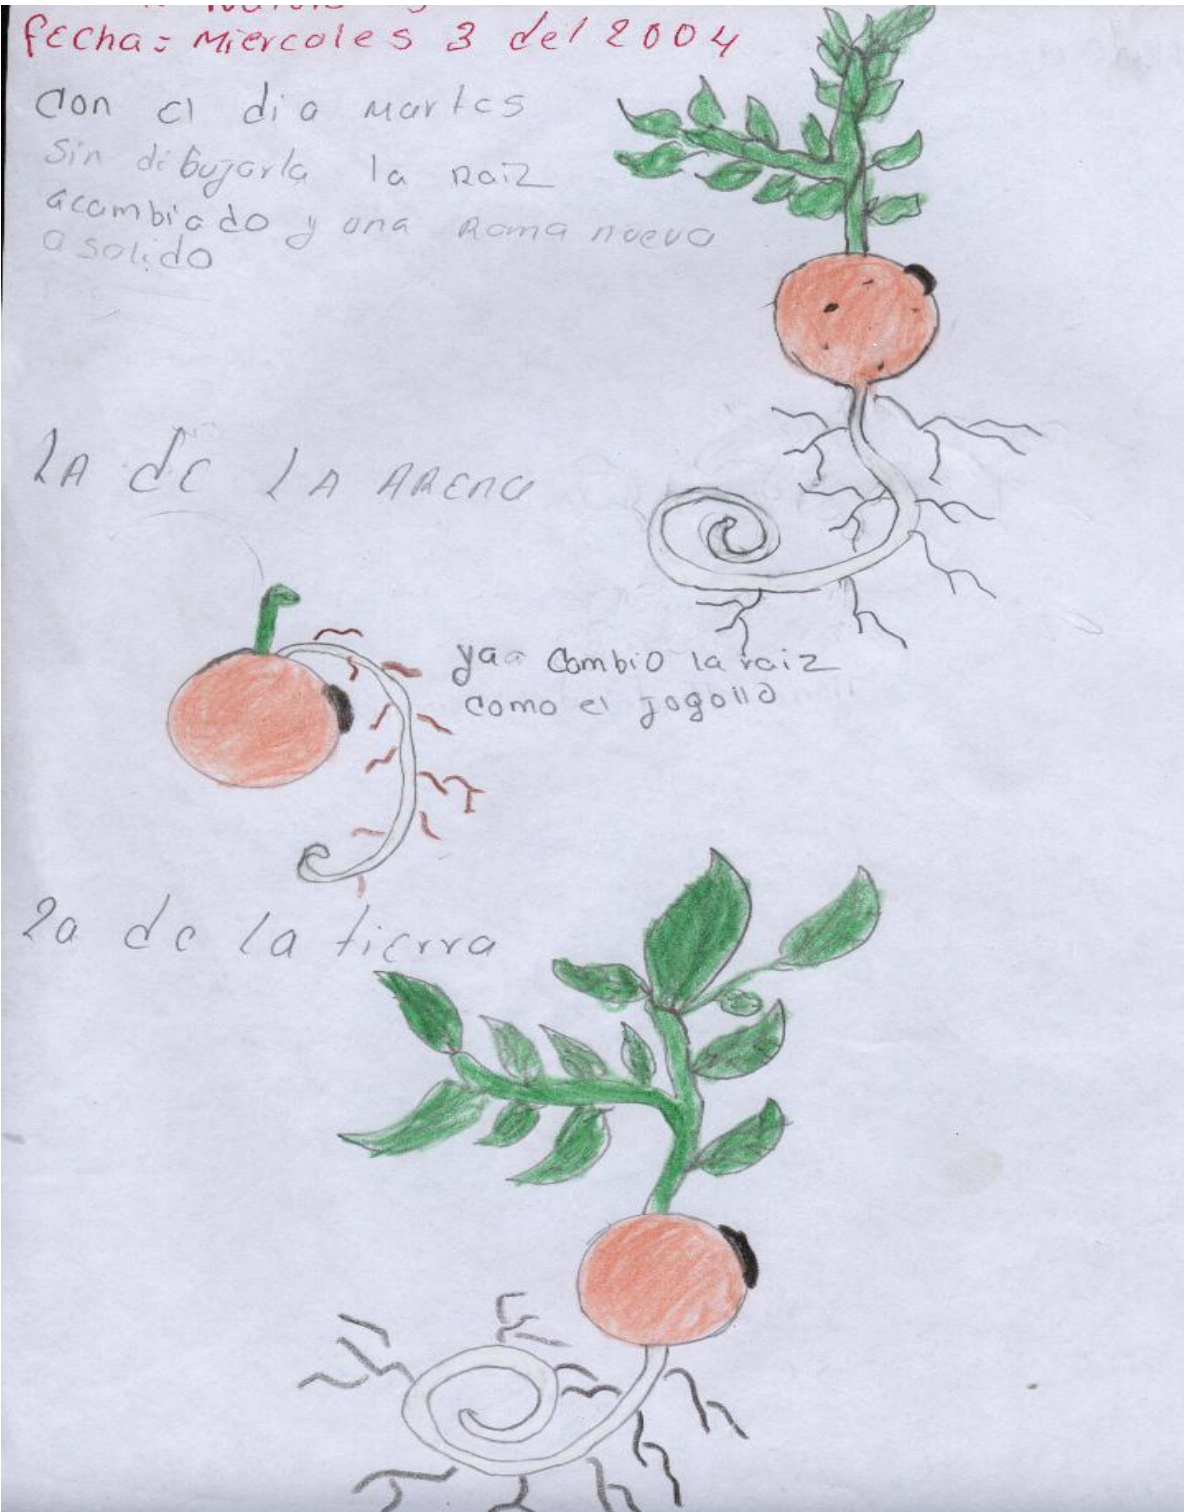 fecha: Miercoles 3 del 2004
con el dia Martes
Sin dibujarla la Raiz
acambiado y una Rama nueva
a salido
LA de LA ARena
ya cambio la raiz
como el jogollo
2a de la tierra